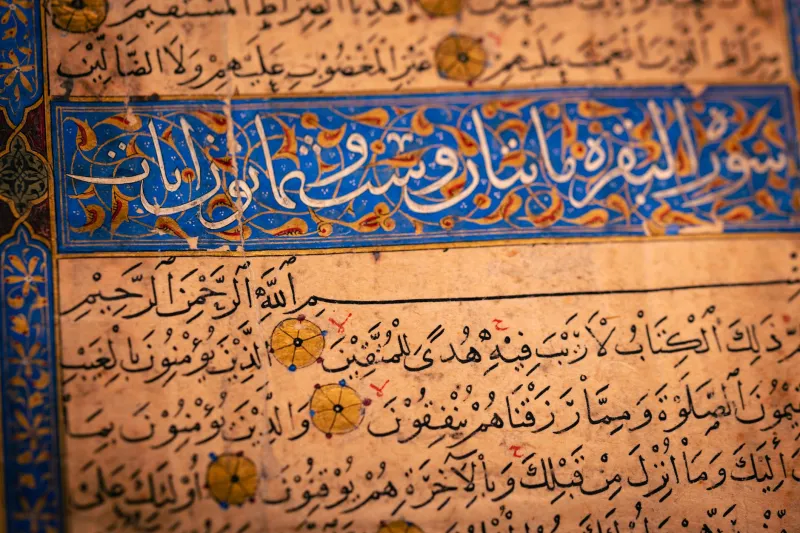 اهدنا الصراط المستقيم
صِرَاطَ الَّذِينَ اَنْعَمْتَ عَلَيْهِمْ غَيْرِ الْمَغْضُوبِ عَلَيْهِمْ وَلَا الضَّالِّيْنَ
سورة البقرة مايتان وست وثمانون ايات
بِسْمِ اللّٰهِ الرَّحْمٰنِ الرَّحِيْمِ
ذٰلِكَ الْكِتَابُ لَا رَيْبَ فِيْهِ هُدًى لِلْمُتَّقِيْنَ الَّذِيْنَ يُؤْمِنُوْنَ بِالْغَيْبِ
الصَّلٰوةَ وَمِمَّا رَزَقْنَاهُمْ يُنْفِقُوْنَ وَالَّذِيْنَ يُؤْمِنُوْنَ بِمَا
اُنْزِلَ اِلَيْكَ وَمَا اُنْزِلَ مِنْ قَبْلِكَ وَبِالْاٰخِرَةِ هُمْ يُوْقِنُوْنَ اُولٰئِكَ عَلٰى